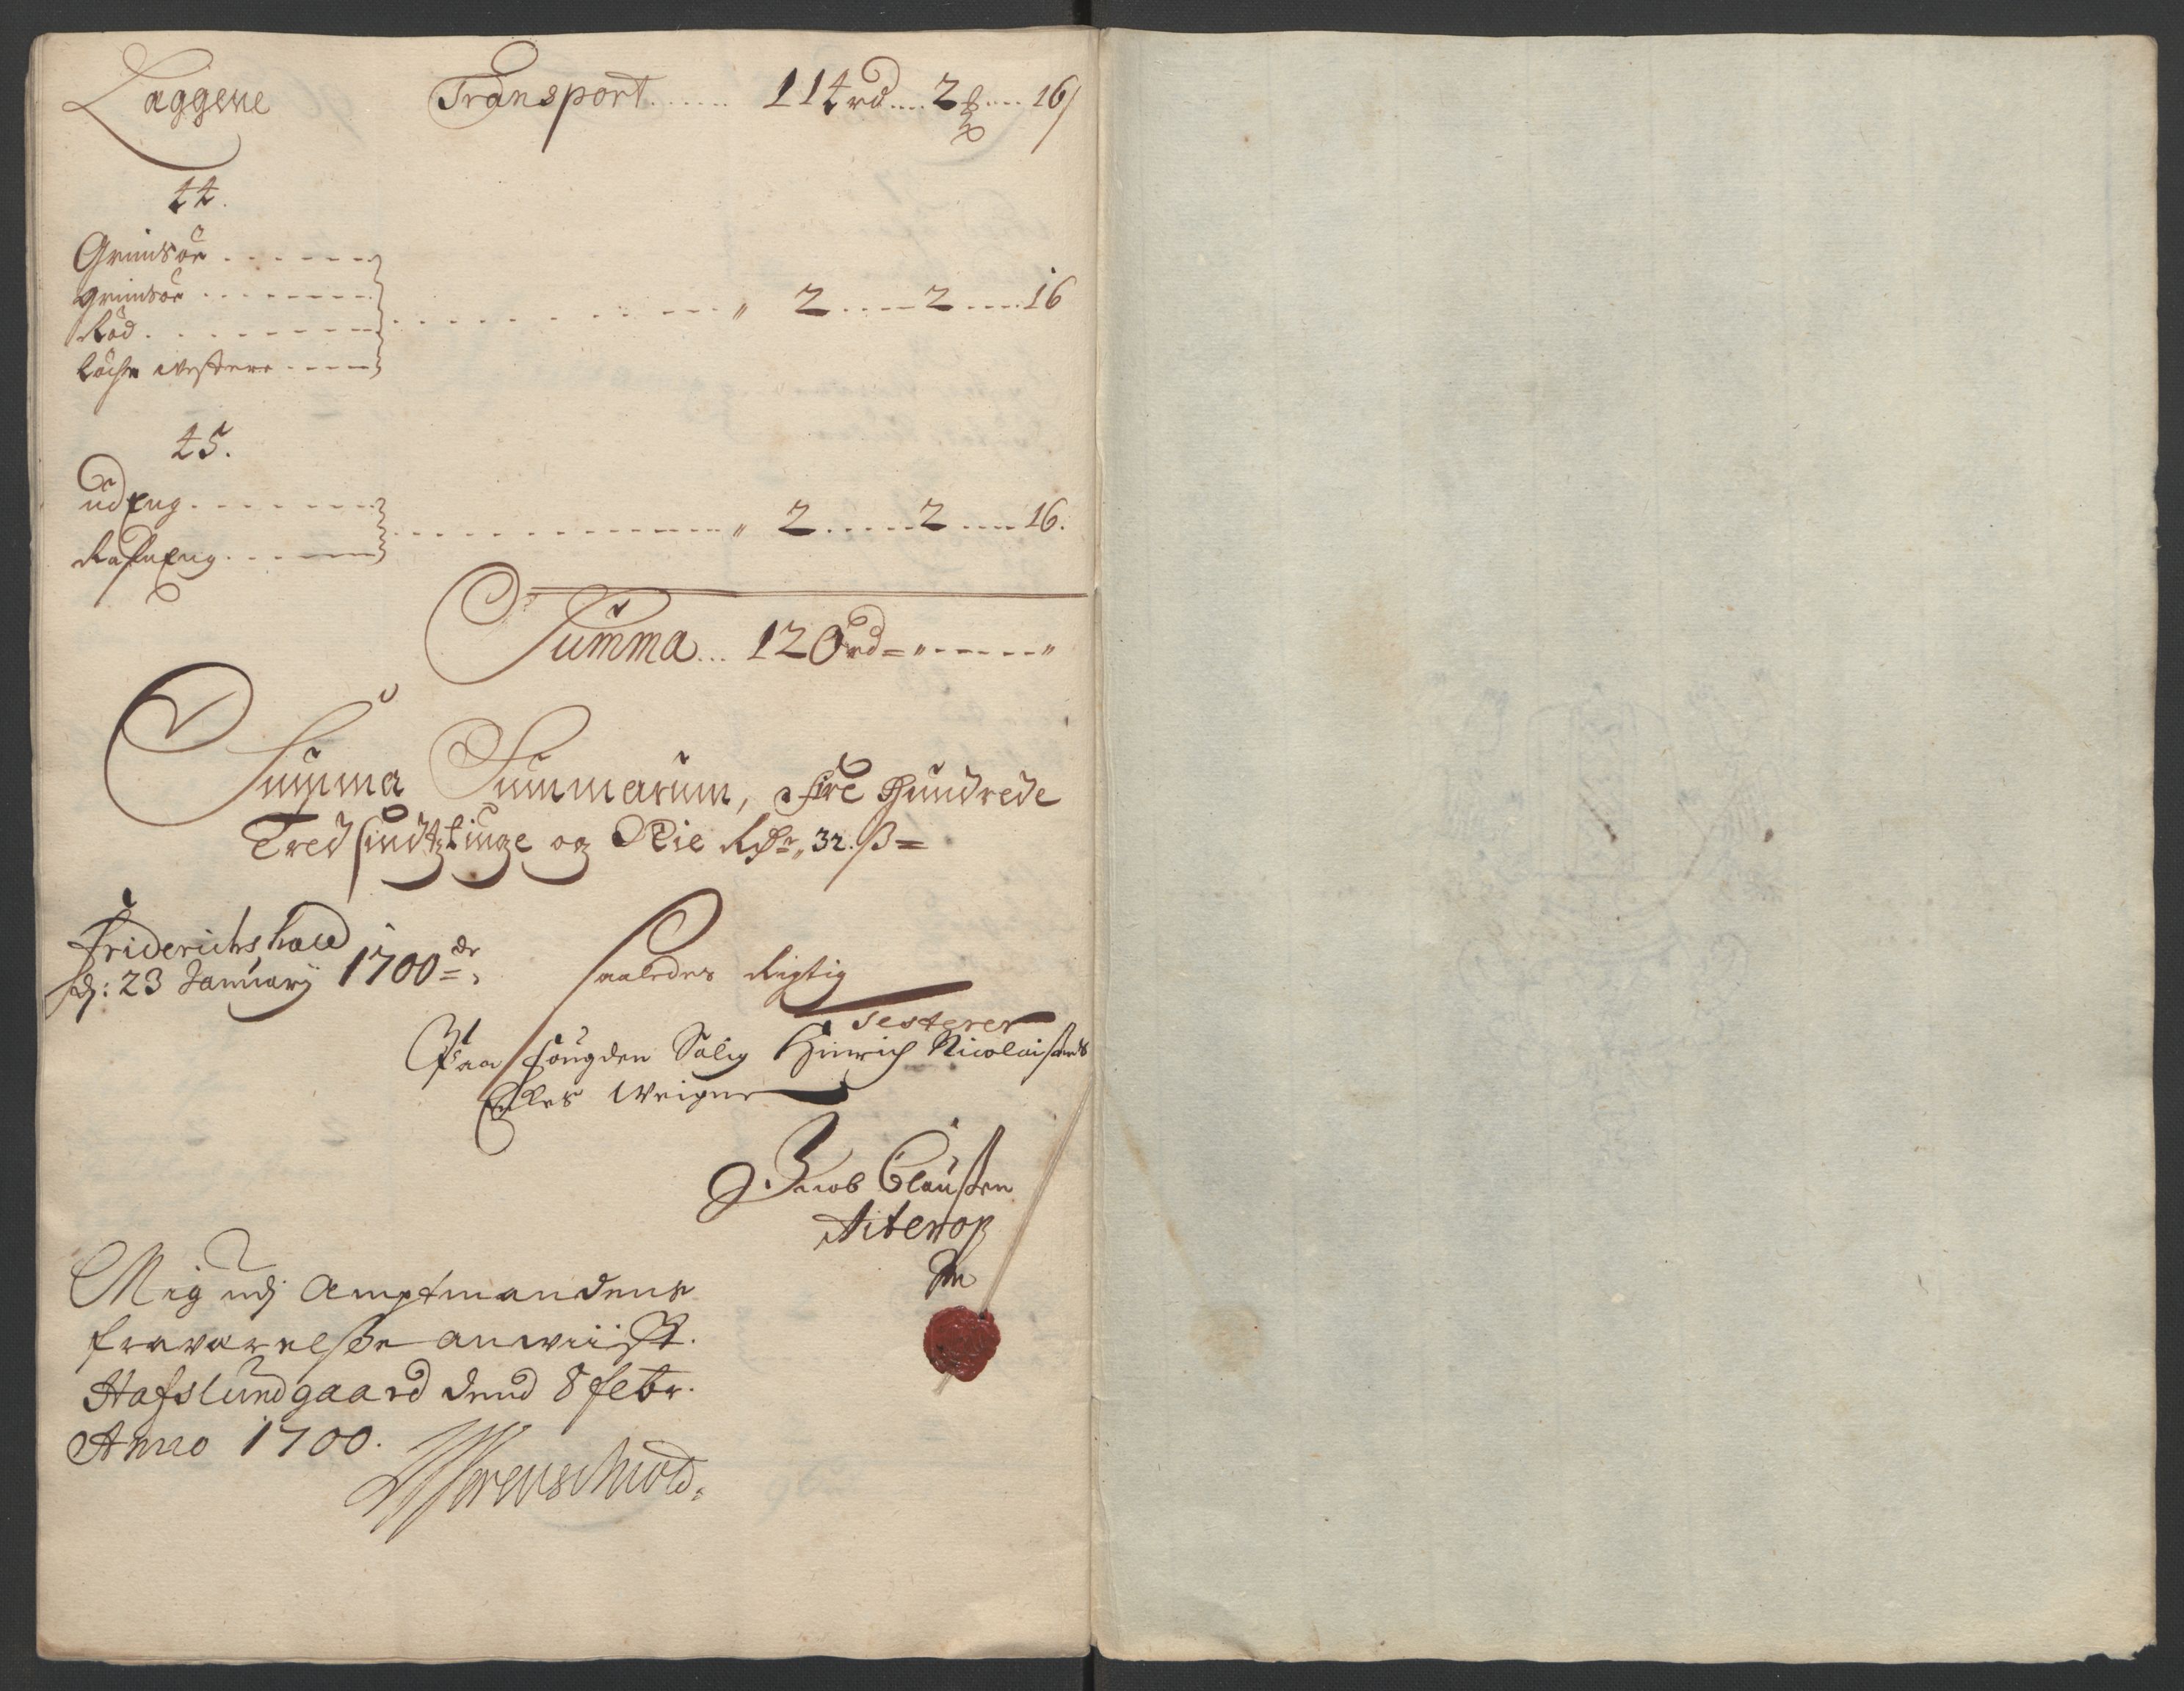 Laggene Transport ...... 114 rd .... 2 ℔ .... 16 /
44.
Grimsöe . - - - - -
grimsöe . . . - - - - -
Röd . . . - - - - - " 2 .... 2 .... 16
westere - - - -
45.
udEng . - - - - -
RafnEng . . - - - " 2 ..... 2 .... 16.
Summa ... 120 rd = " - - - - "
Summa Summarum, Fire Hundrede
Tredsindtztiuge og Nie Rdr „ 32. β =
Friderichshald
d: 23 January 1700 =
saaledes Rigtig
Testerer
Paa fougden Salig Hinrich Nicolaisens
Efles Weigne
Jacob Clausen
Mig udj Amptmandens
fraværelsse anwiist.
Hafslundgaard dend 8 febr.
Anno 1700.